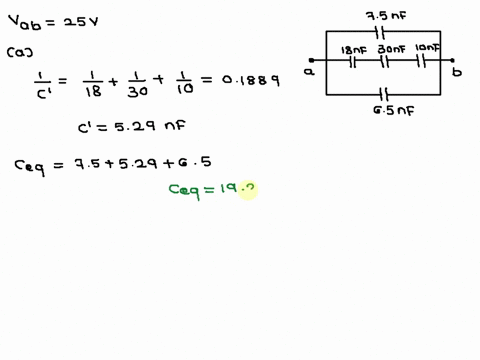 Vab = 25V
(a)
1/C' = 1/18 + 1/30 + 1/10 = 0.1889
C' = 5.29 nF
Ceq = 7.5 + 5.29 + 6.5
Ceq = 19.
7.5 nF
18nF 30nF 10nF
a b
6.5nF